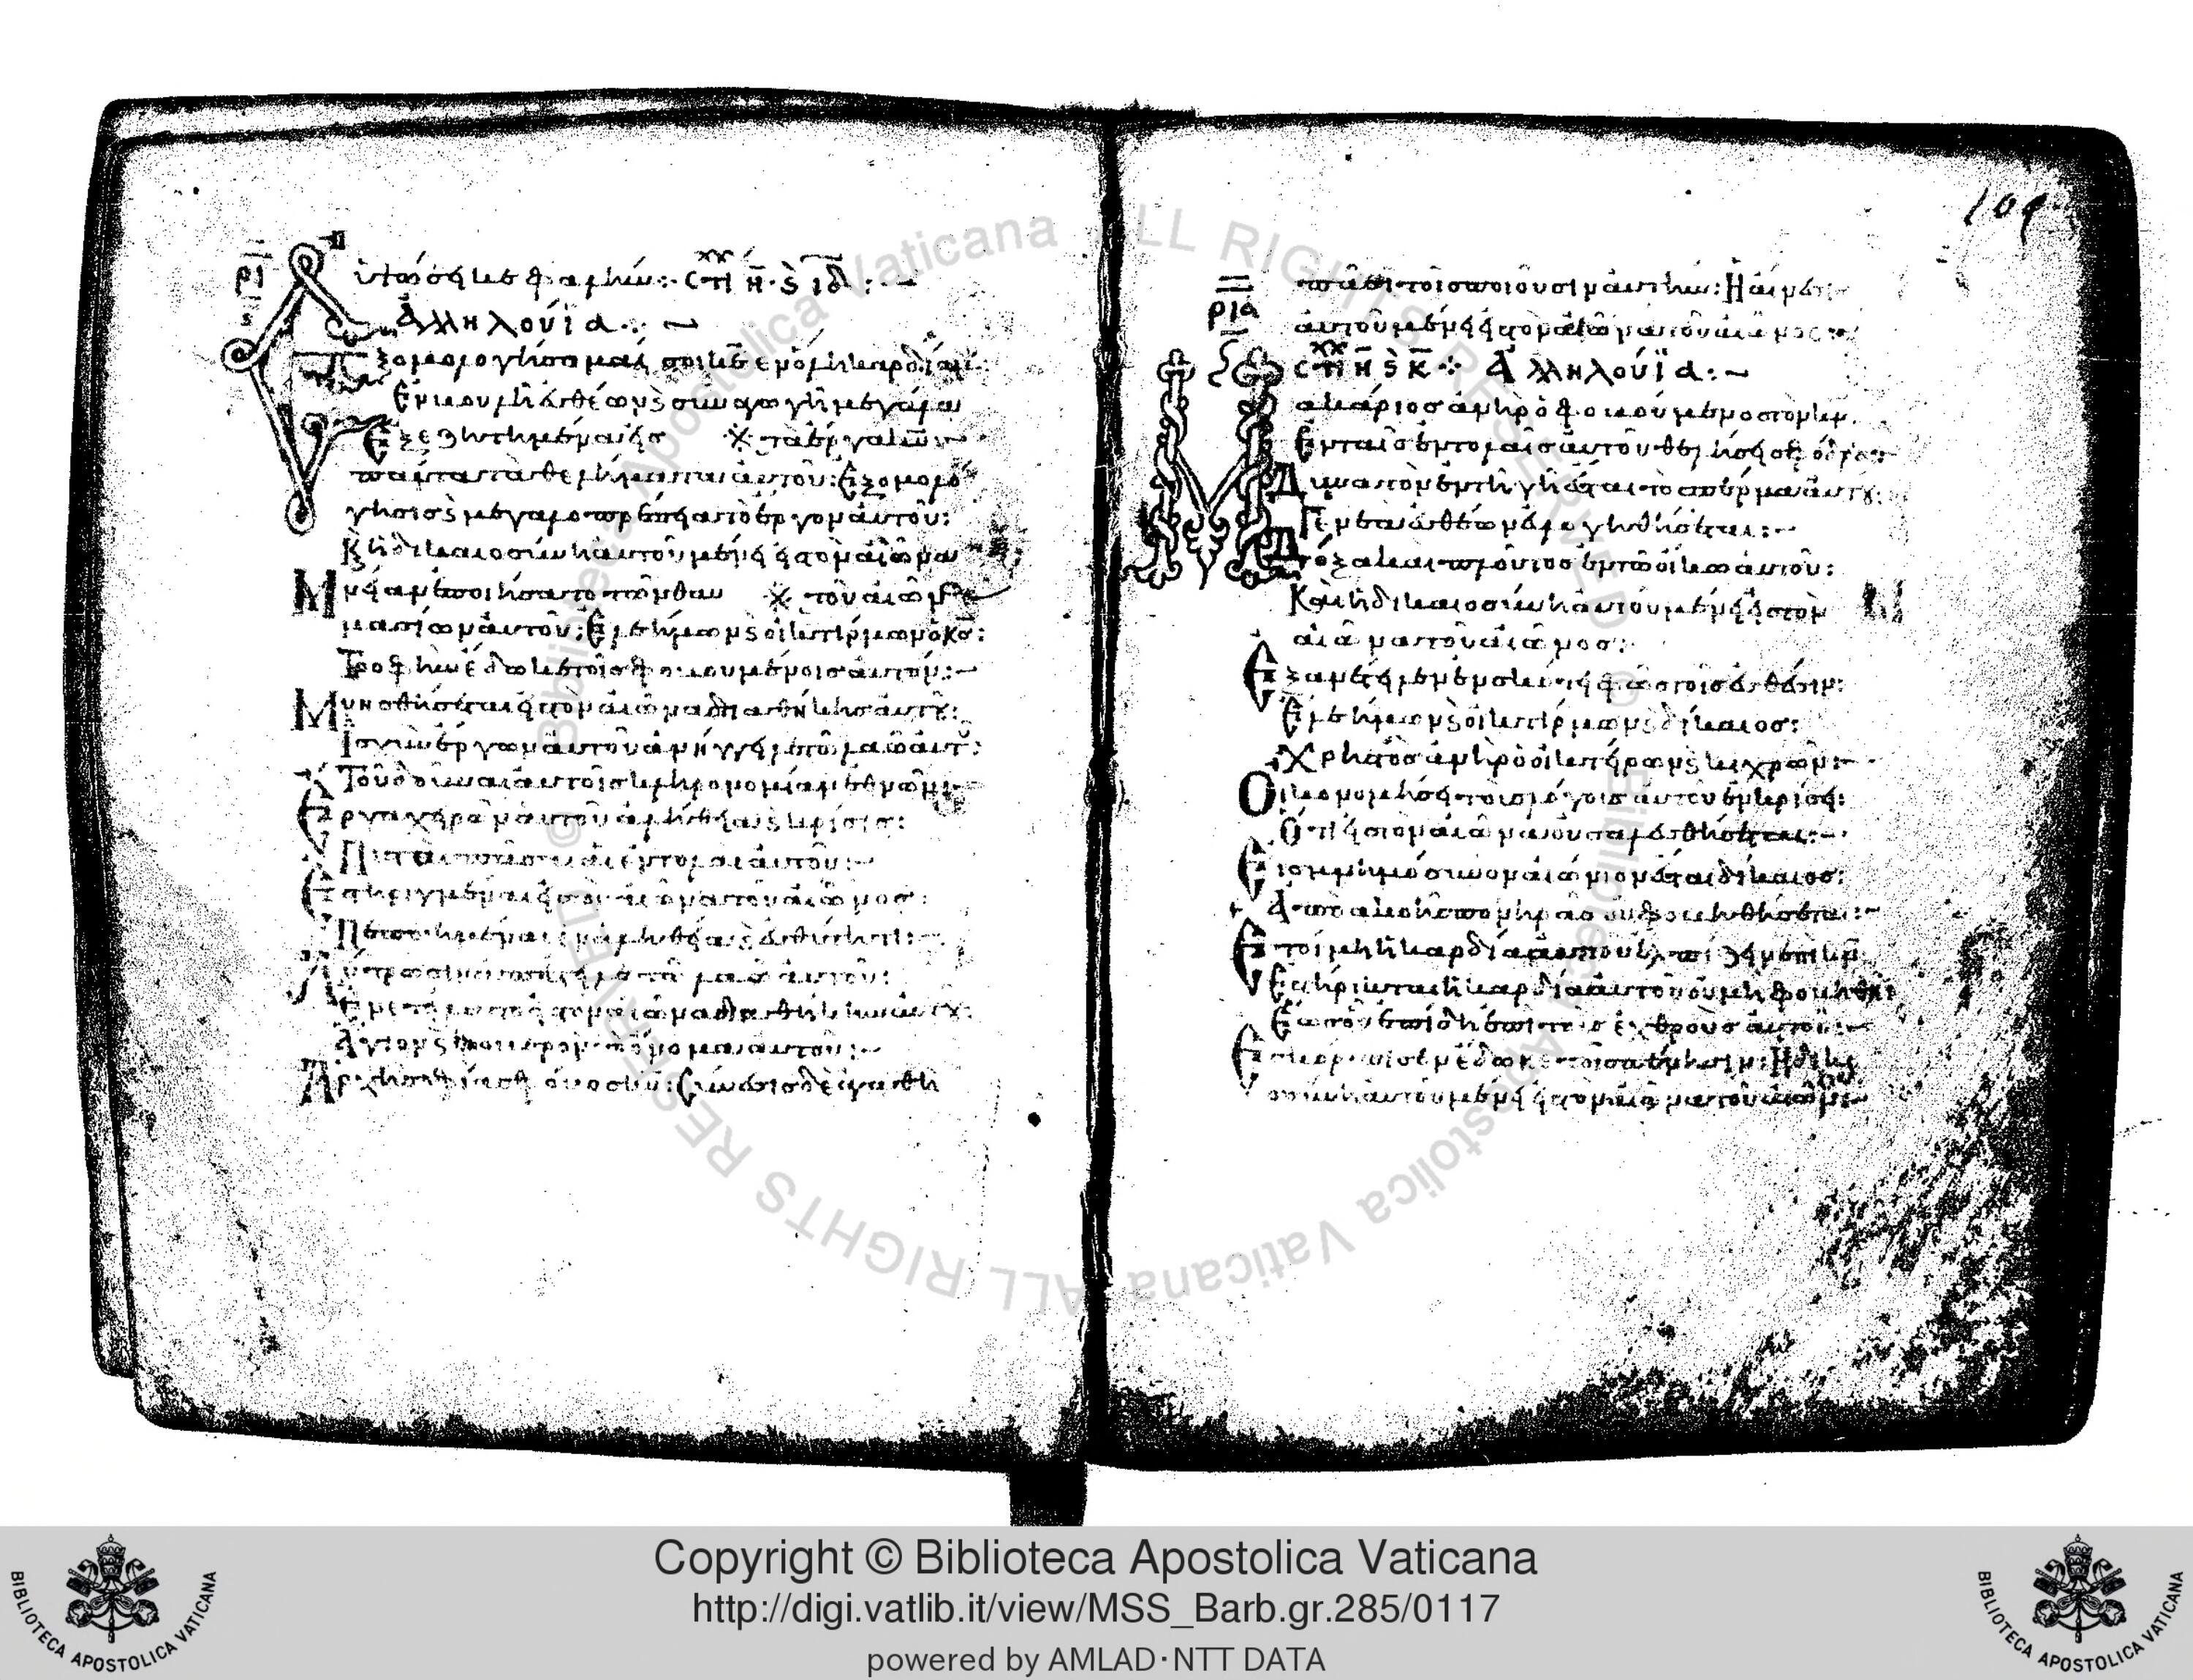 ρι
Ἀλληλούϊα
ξομολογήσομαί σοι κε ἐν ὅλη καρδία μου
Ἐν βουλῆ εὐθέων ϛ συναγωγῆ μεγάλα
Ἐξεζητημένα εἰς τὰ ἔργα κῦ
πάντα τὰ θελήματα αὐτοῦ: Ἐξομολό
γησις ϛ μεγαλοπρέπεια τὸ ἔργον αὐτοῦ:
Κ ἡ δικαιοσύνη αὐτοῦ μένει εἰς τὸν αἰῶνα
Μνείαν ἐποιήσατο τῶν θαυ τοῦ αἰῶν
μασίων αὐτοῦ: Ἐλεήμων ϛ οἰκτίρμων ὁ κς:
Τροφὴν ἔδωκε τοῖς φοβουμένοις αὐτόν:
Μνησθήσεται εἰς τὸν αἰῶνα διαθήκης αὐτοῦ:
Ἰσχὺν ἔργων αὐτοῦ ἀνήγγειλε τῶ λαῶ αὐτοῦ:
Τοῦ δοῦναι αὐτοῖς κληρονομίαν ἐθνῶν:
Ἔργα χειρῶν αὐτοῦ ἀλήθεια ϛ κρίσις:
Πισταὶ πᾶσαι αἱ ἐντολαὶ αὐτοῦ:
Ἐστηριγμέναι εἰς τὸν αἰῶνα τοῦ αἰῶνος:
Πεποιημέναι ἐν ἀληθεία ϛ εὐθύτητι:
Λύτρωσιν ἀπέστειλε τῶ λαῶ αὐτοῦ:
Ἐνετείλατο εἰς τὸν αἰῶνα διαθήκην αὐτοῦ:
Ἅγιον ϛ φοβερὸν τὸ ὄνομα αὐτοῦ:
Ἀρχὴ σοφίας φόβος κῦ: Σύνεσις δὲ ἀγαθὴ
109
πᾶσι τοῖς ποιοῦσιν αὐτήν: Ἡ αἴνεσις
αὐτοῦ μένει εἰς τὸν αἰῶνα τοῦ αἰῶνος
ρια
Ἀλληλούϊα
Μακάριος ἀνὴρ ὁ φοβούμενος τὸν κν
Ἐν ταῖς ἐντολαῖς αὐτοῦ θελήσει σφόδρα
Δυνατὸν ἐν τῆ γῆ ἔσται τὸ σπέρμα αὐτοῦ:
Γενεὰ εὐθέων εὐλογηθήσεται:
Δόξα καὶ πλοῦτος ἐν τῶ οἴκω αὐτοῦ:
Καὶ ἡ δικαιοσύνη αὐτοῦ μένει εἰς τὸν
αἰῶνα τοῦ αἰῶνος:
Ἐξανέτειλεν ἐν σκότει φῶς τοῖς εὐθέσιν:
Ἐλεήμων ϛ οἰκτίρμων ϛ δίκαιος:
Χρηστὸς ἀνὴρ ὁ οἰκτείρων ϛ κιχρῶν:
Οἰκονομήσει τοὺς λόγους αὐτοῦ ἐν κρίσει:
Ὅτι εἰς τὸν αἰῶνα οὐ σαλευθήσεται:
Εἰς μνημόσυνον αἰώνιον ἔσται δίκαιος:
Ἀπὸ ἀκοῆς πονηρᾶς οὐ φοβηθήσεται:
Ἑτοίμη ἡ καρδία αὐτοῦ ἐλπίζειν ἐπὶ κν
Ἐστήρικται ἡ καρδία αὐτοῦ οὐ μὴ φοβηθῆ
Ἕως οὗ ἐπίδη ἐπὶ τοὺς ἐχθροὺς αὐτοῦ:
Ἐσκόρπισεν ἔδωκε τοῖς πένησιν: Ἡ δικαι
οσύνη αὐτοῦ μένει εἰς τὸν αἰῶνα τοῦ αἰῶνος
Copyright © Biblioteca Apostolica Vaticana
http://digi.vatlib.it/view/MSS_Barb.gr.285/0117
powered by AMLAD·NTT DATA
BIBLIOTECA APOSTOLICA VATICANA
BIBLIOTECA APOSTOLICA VATICANA